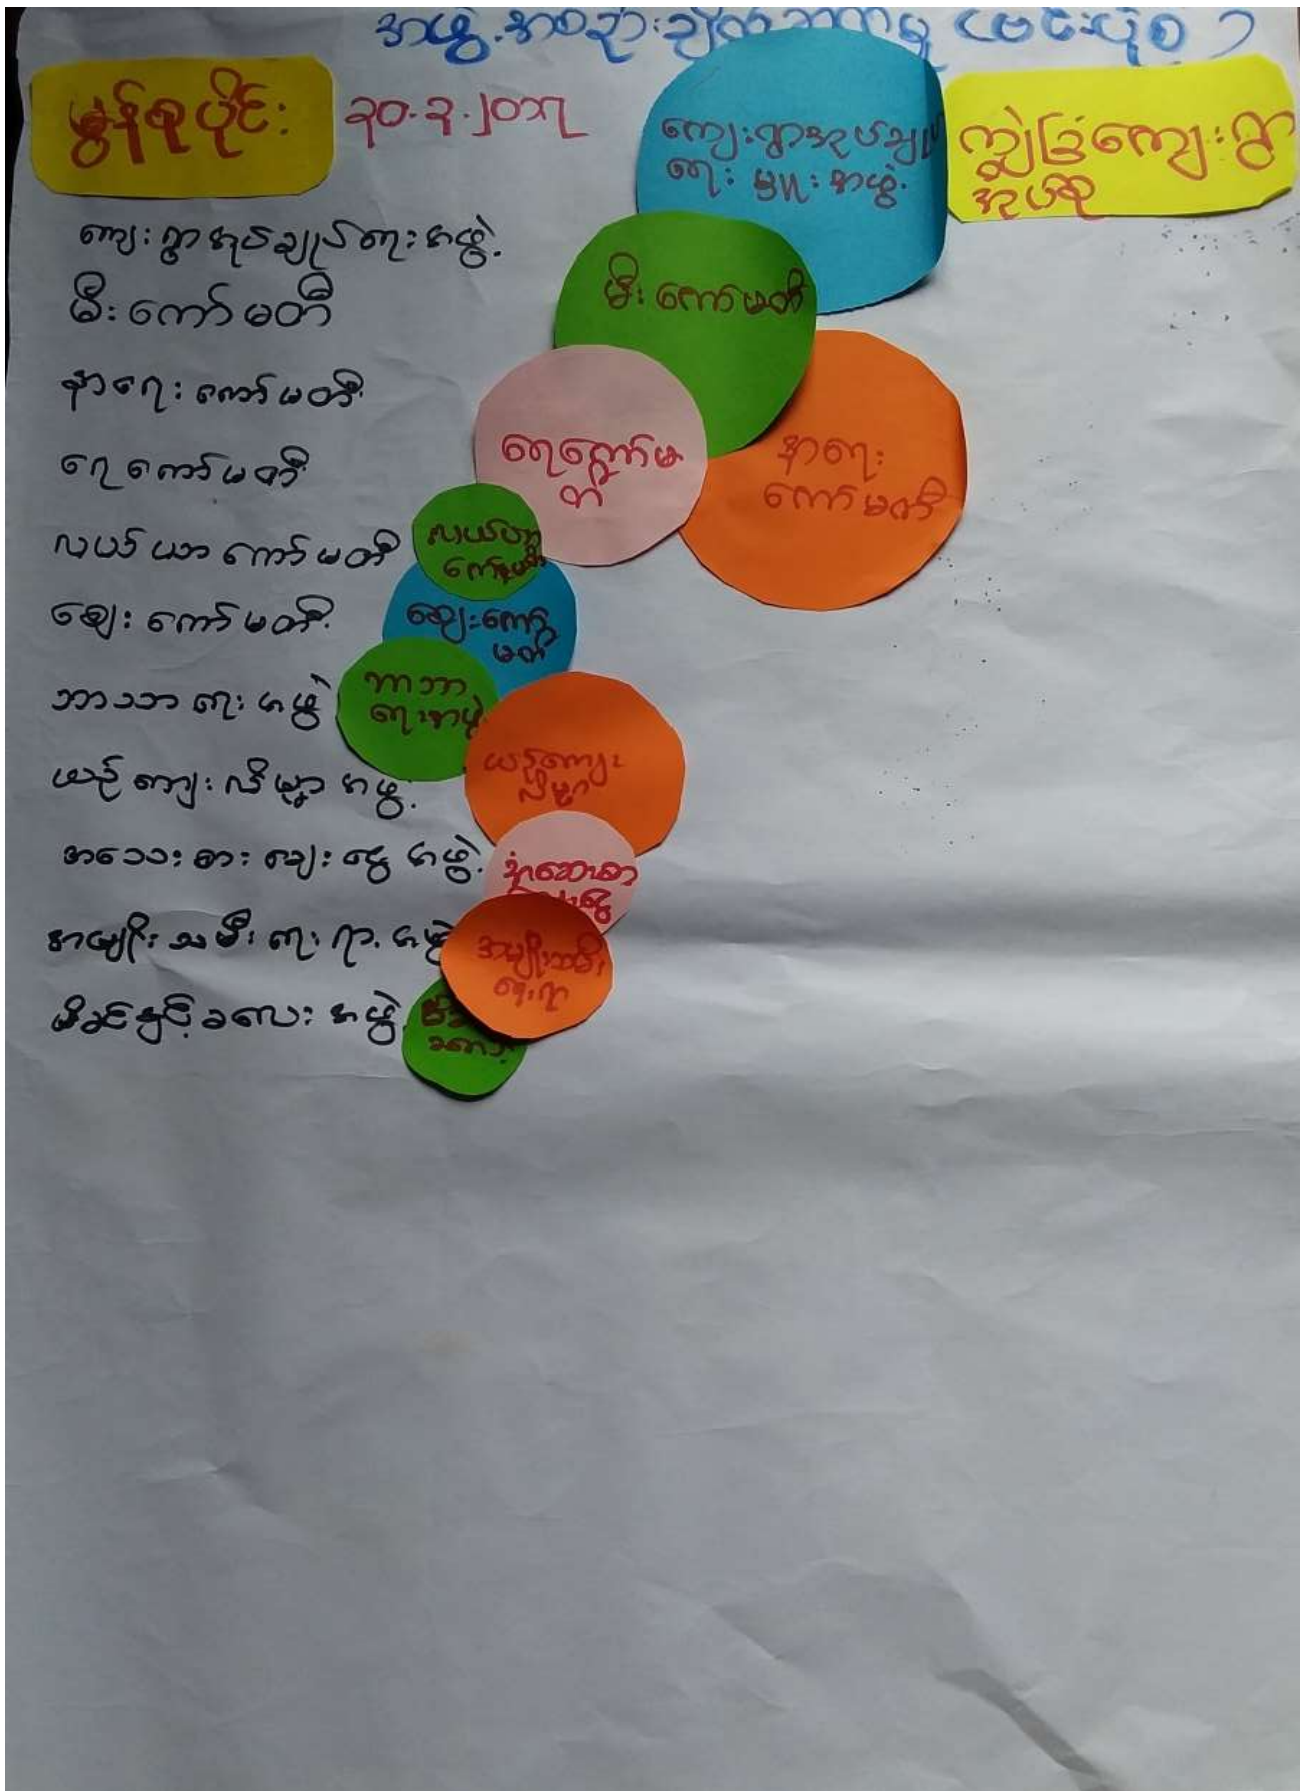 အဖွဲ့အစည်းချိတ်ဆက်မှု (ဗင်းပုံစံ)
မွန်စုပိုင်း
၃၀.၃.၂၀၁၇
ကျေးရွာအုပ်ချုပ်
ရေးမှူးအဖွဲ့
ကျွဲခြံကျေးရွာ
အုပ်စု
ကျေးရွာအုပ်ချုပ်ရေးအဖွဲ့
မီးကော်မတီ
နာရေးကော်မတီ
ရေကော်မတီ
လယ်ယာကော်မတီ
ဈေးကော်မတီ
ဘာသာရေးအဖွဲ့
ယဉ်ကျေးလိမ္မာအဖွဲ့
အသေးစားချေးငွေအဖွဲ့
အမျိုးသမီးရေးရာအဖွဲ့
မိခင်နှင့်ခလေးအဖွဲ့
မီးကော်မတီ
ရေကော်မ
တီ
နာရေး
ကော်မတီ
လယ်ယာ
ကော်မတီ
ဈေးကော်
မတီ
ဘာသာ
ရေးအဖွဲ့
ယဉ်ကျေး
လိမ္မာ
အမျိုးသမီး
ရေးရာ